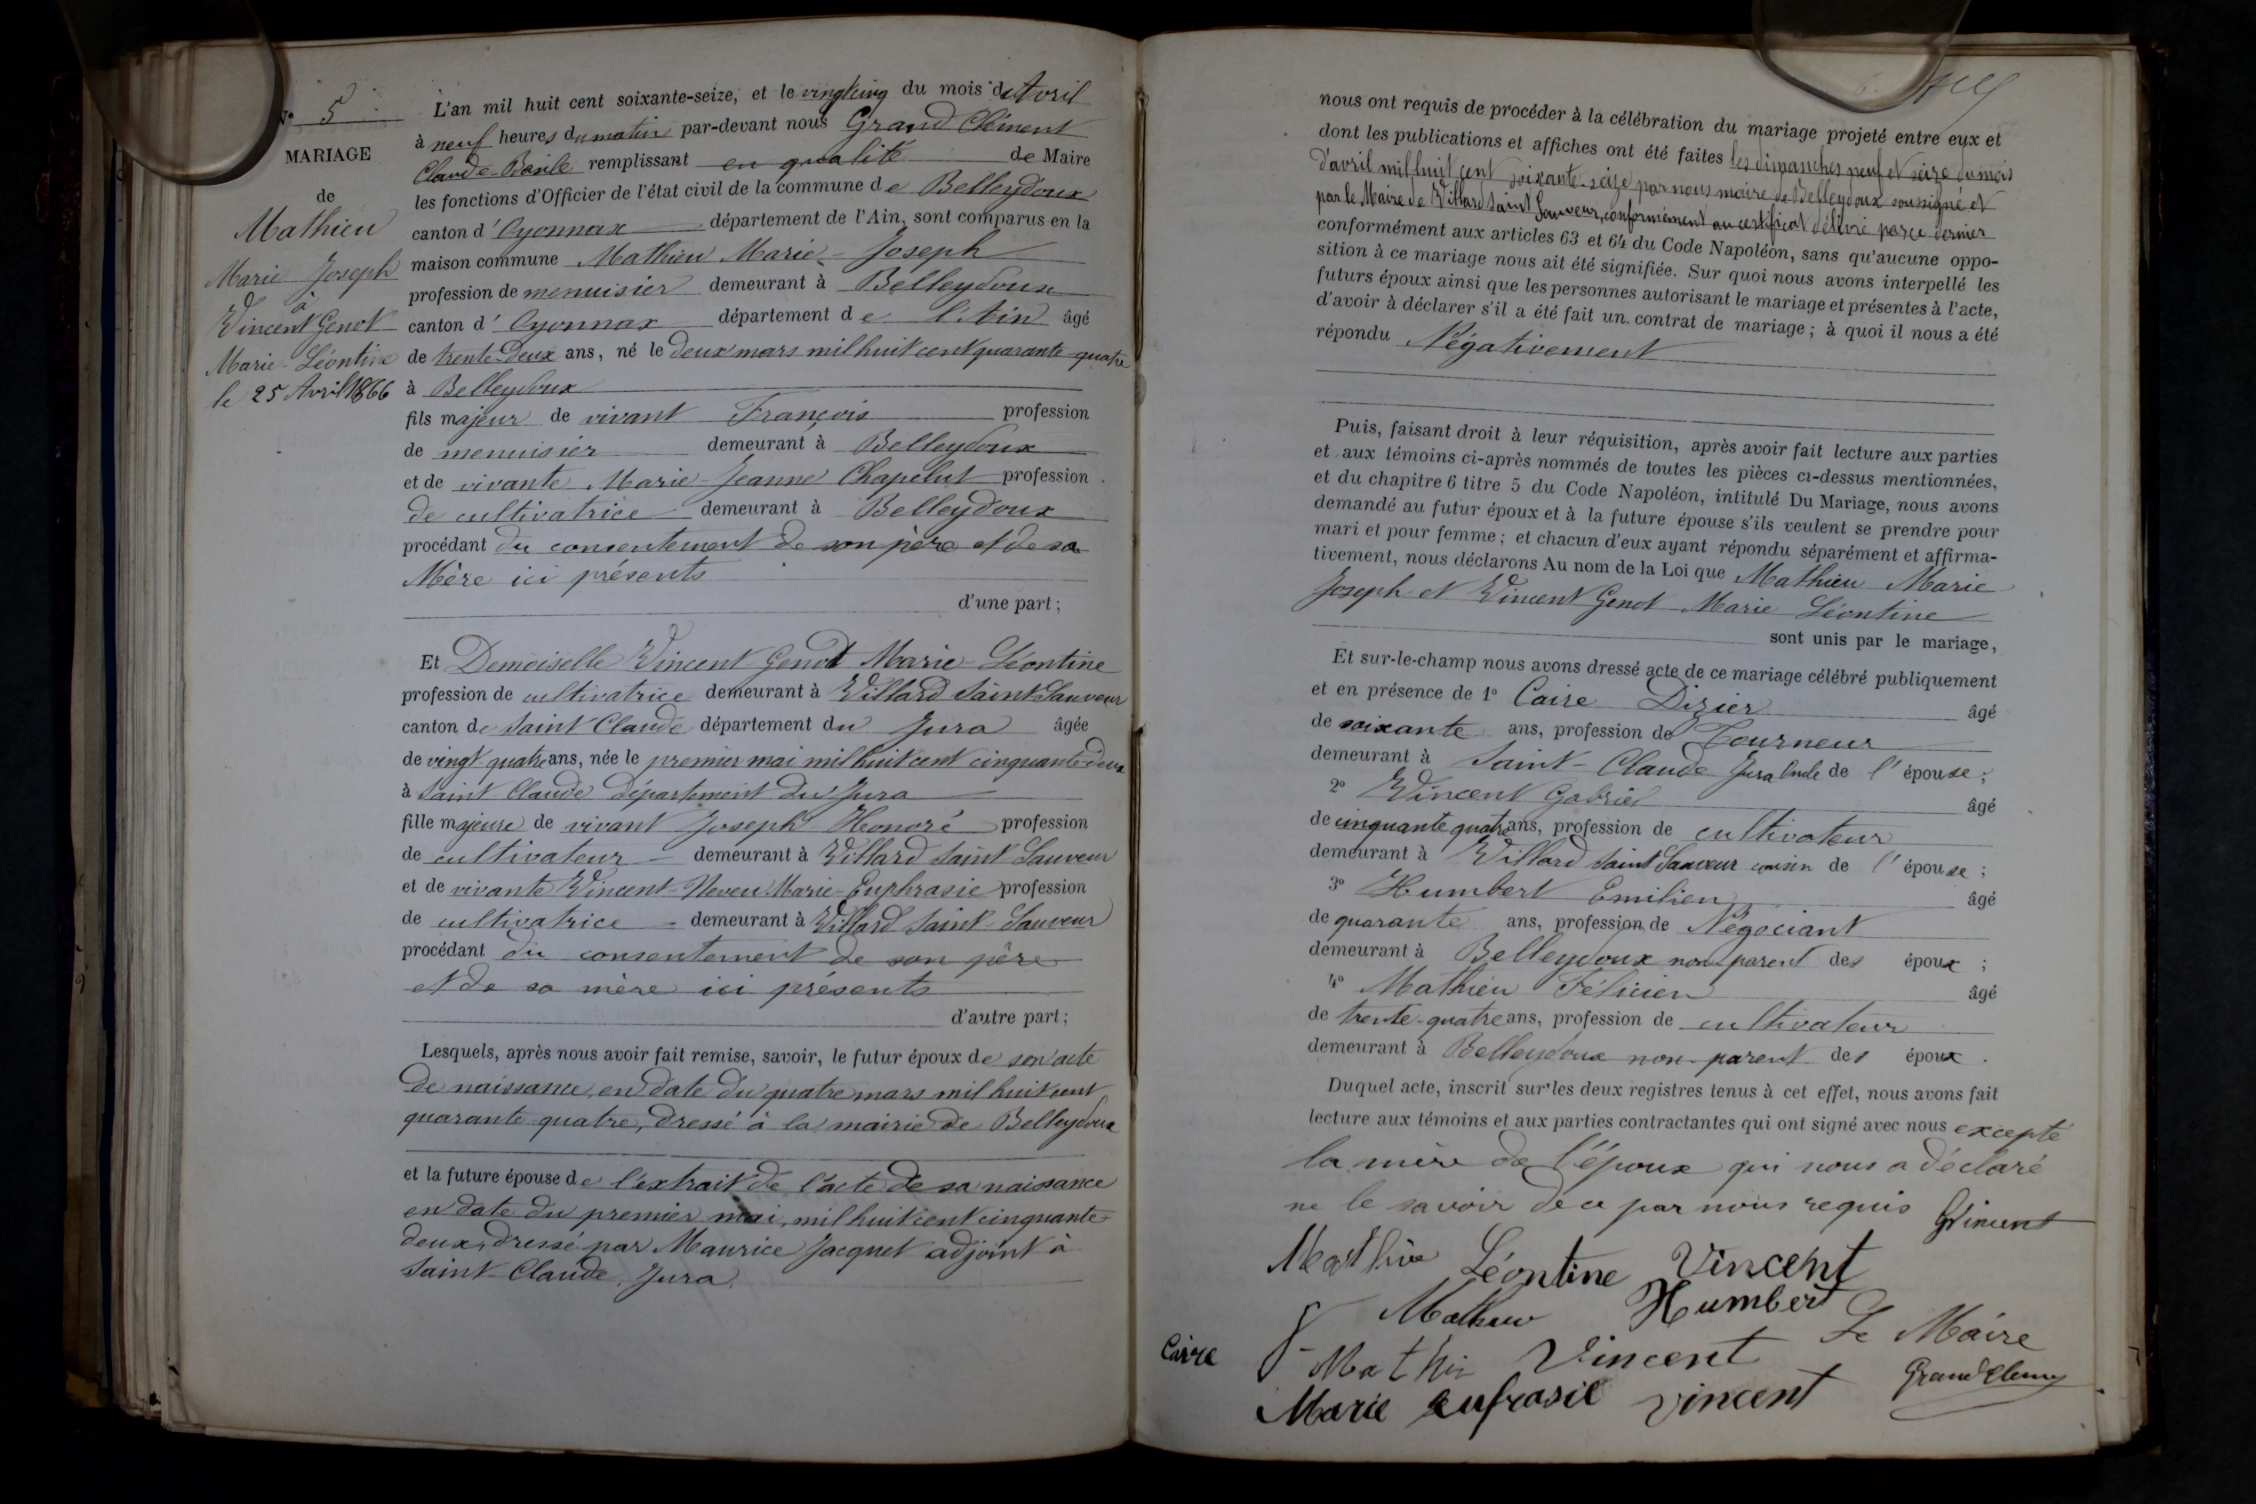 N° 5
MARIAGE
de
Mathieu
Marie Joseph
à
Vincent Genot
Marie-Léontine
le 25 Avril 1866
L'an mil huit cent soixante-seize, et le vingt cinq du mois d'Avril
à neuf heures du matin par-devant nous Grand Clément
Claude-Basile remplissant en qualité de Maire
les fonctions d'Officier de l'état civil de la commune de Belleydoux
canton d'Oyonnax département de l'Ain, sont comparus en la
maison commune Mathieu Marie-Joseph
profession de menuisier demeurant à Belleydoux
canton d'Oyonnax département de l'Ain âgé
de trente-deux ans, né le deux mars mil huit cent quarante-quatre
à Belleydoux
fils majeur de vivant François profession
de menuisier demeurant à Belleydoux
et de vivante Marie-Jeanne Chapelut profession
de cultivatrice demeurant à Belleydoux
procédant du consentement de son père et de sa
Mère ici présents
d'une part;
Et Demoiselle Vincent Genot Marie-Léontine
profession de cultivatrice demeurant à Villard Saint Sauveur
canton de Saint Claude département du Jura âgée
de vingt quatre ans, née le premier mai mil huit cent cinquante deux
à Saint Claude département du Jura
fille majeure de vivant Joseph Honoré profession
de cultivateur demeurant à Villard Saint Sauveur
et de vivante Vincent-Neveu Marie-Euphrasie profession
de cultivatrice demeurant à Villard Saint-Sauveur
procédant du consentement de son père
et de sa mère ici présents
d'autre part;
Lesquels, après nous avoir fait remise, savoir, le futur époux de son acte
de naissance, en date du quatre mars mil huit cent
quarante quatre, dressé à la mairie de Belleydoux
et la future épouse de l'extrait de l'acte de sa naissance
en date du premier mai, mil huit cent cinquante
deux, dressé par Maurice Jacquet adjoint à
Saint-Claude, Jura
nous ont requis de procéder à la célébration du mariage projeté entre eux et
dont les publications et affiches ont été faites les dimanches neuf et seize du mois
d'avril mil huit cent soixante-seize par nous maire de Belleydoux soussigné et
par le Maire de Villard Saint Sauveur, conformément au certificat délivré par ce dernier
conformément aux articles 63 et 64 du Code Napoléon, sans qu'aucune oppo-
sition à ce mariage nous ait été signifiée. Sur quoi nous avons interpellé les
futurs époux ainsi que les personnes autorisant le mariage et présentes à l'acte,
d'avoir à déclarer s'il a été fait un contrat de mariage; à quoi il nous a été
répondu Négativement
Puis, faisant droit à leur réquisition, après avoir fait lecture aux parties
et aux témoins ci-après nommés de toutes les pièces ci-dessus mentionnées,
et du chapitre 6 titre 5 du Code Napoléon, intitulé Du Mariage, nous avons
demandé au futur époux et à la future épouse s'ils veulent se prendre pour
mari et pour femme; et chacun d'eux ayant répondu séparément et affirma-
tivement, nous déclarons Au nom de la Loi que Mathieu Marie
Joseph et Vincent Genot Marie Léontine
sont unis par le mariage,
Et sur-le-champ nous avons dressé acte de ce mariage célébré publiquement
et en présence de 1° Caire Dizier âgé
de soixante ans, profession de Tourneur
demeurant à Saint-Claude Jura Oncle de l'épouse;
2° Vincent Gabriel âgé
de cinquante quatre ans, profession de cultivateur
demeurant à Villard Saint Sauveur cousin de l'épouse;
3° Humbert Emilien âgé
de quarante ans, profession de Négociant
demeurant à Belleydoux non parent des époux;
4° Mathieu Félicien âgé
de trente-quatre ans, profession de cultivateur
demeurant à Belleydoux non-parent des époux.
Duquel acte, inscrit sur les deux registres tenus à cet effet, nous avons fait
lecture aux témoins et aux parties contractantes qui ont signé avec nous excepté
la mère de l'époux qui nous a déclaré
ne le savoir de ce par nous requis
GVincent
Mathieu Léontine Vincent
Mathieu Humbert
Caire Vincent Le Maire
Marie eufrasie vincent